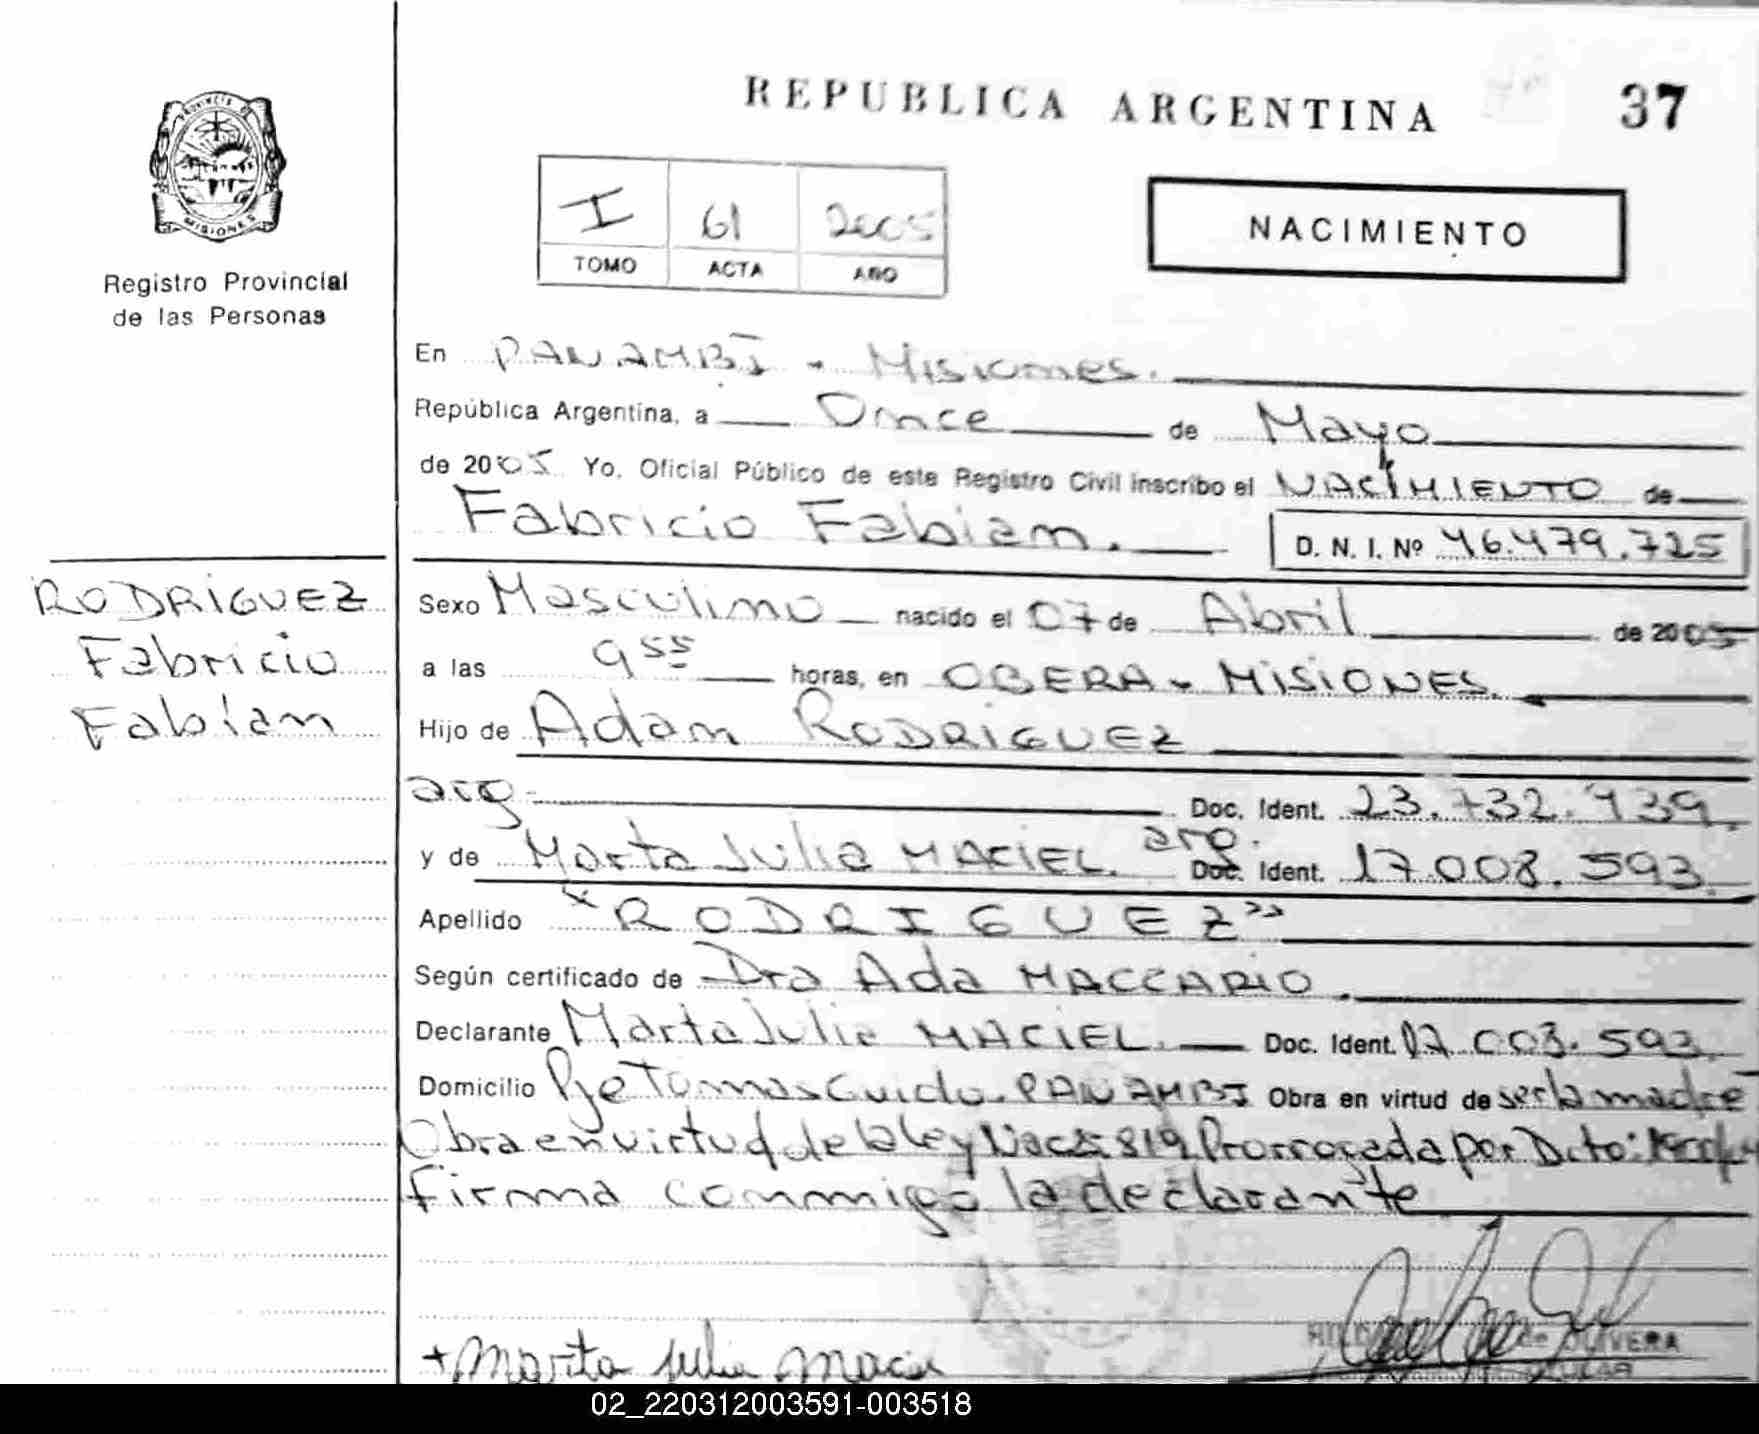 REPUBLICA ARGENTINA 37
PROVINCIA DE
MISIONES
Registro Provincial
de las Personas
I 61 2005
TOMO ACTA AÑO
NACIMIENTO
En PANAMBÍ - Misiones.
República Argentina, a Once de Mayo
de 2005 Yo, Oficial Público de este Registro Civil inscribo el NACIMIENTO de
Fabricio Fabian. D. N. I. Nº 46.479.725
RODRIGUEZ
Fabricio
Fabian
Sexo Masculino nacido el 07 de Abril de 2005
a las 9 55 horas, en OBERA - MISIONES.
Hijo de Adan RODRIGUEZ
arg. Doc. Ident. 23.732.439.
y de Marta Julia MACIEL. arg. Doc. Ident. 17.008.593.
Apellido "RODRIGUEZ"
Según certificado de Dra Ada MACCARIO.
Declarante Marta Julia MACIEL. Doc. Ident. 17.008.593.
Domicilio Pje Tomas Guido - PANAMBI Obra en virtud de ser la madre
Obra en virtud de la ley Nac 25819 Prorrogada por Dcto:
firma conmigo la declarante
+ Marta Julia Maciel
DE OLIVERA
TITULAR
02_220312003591-003518